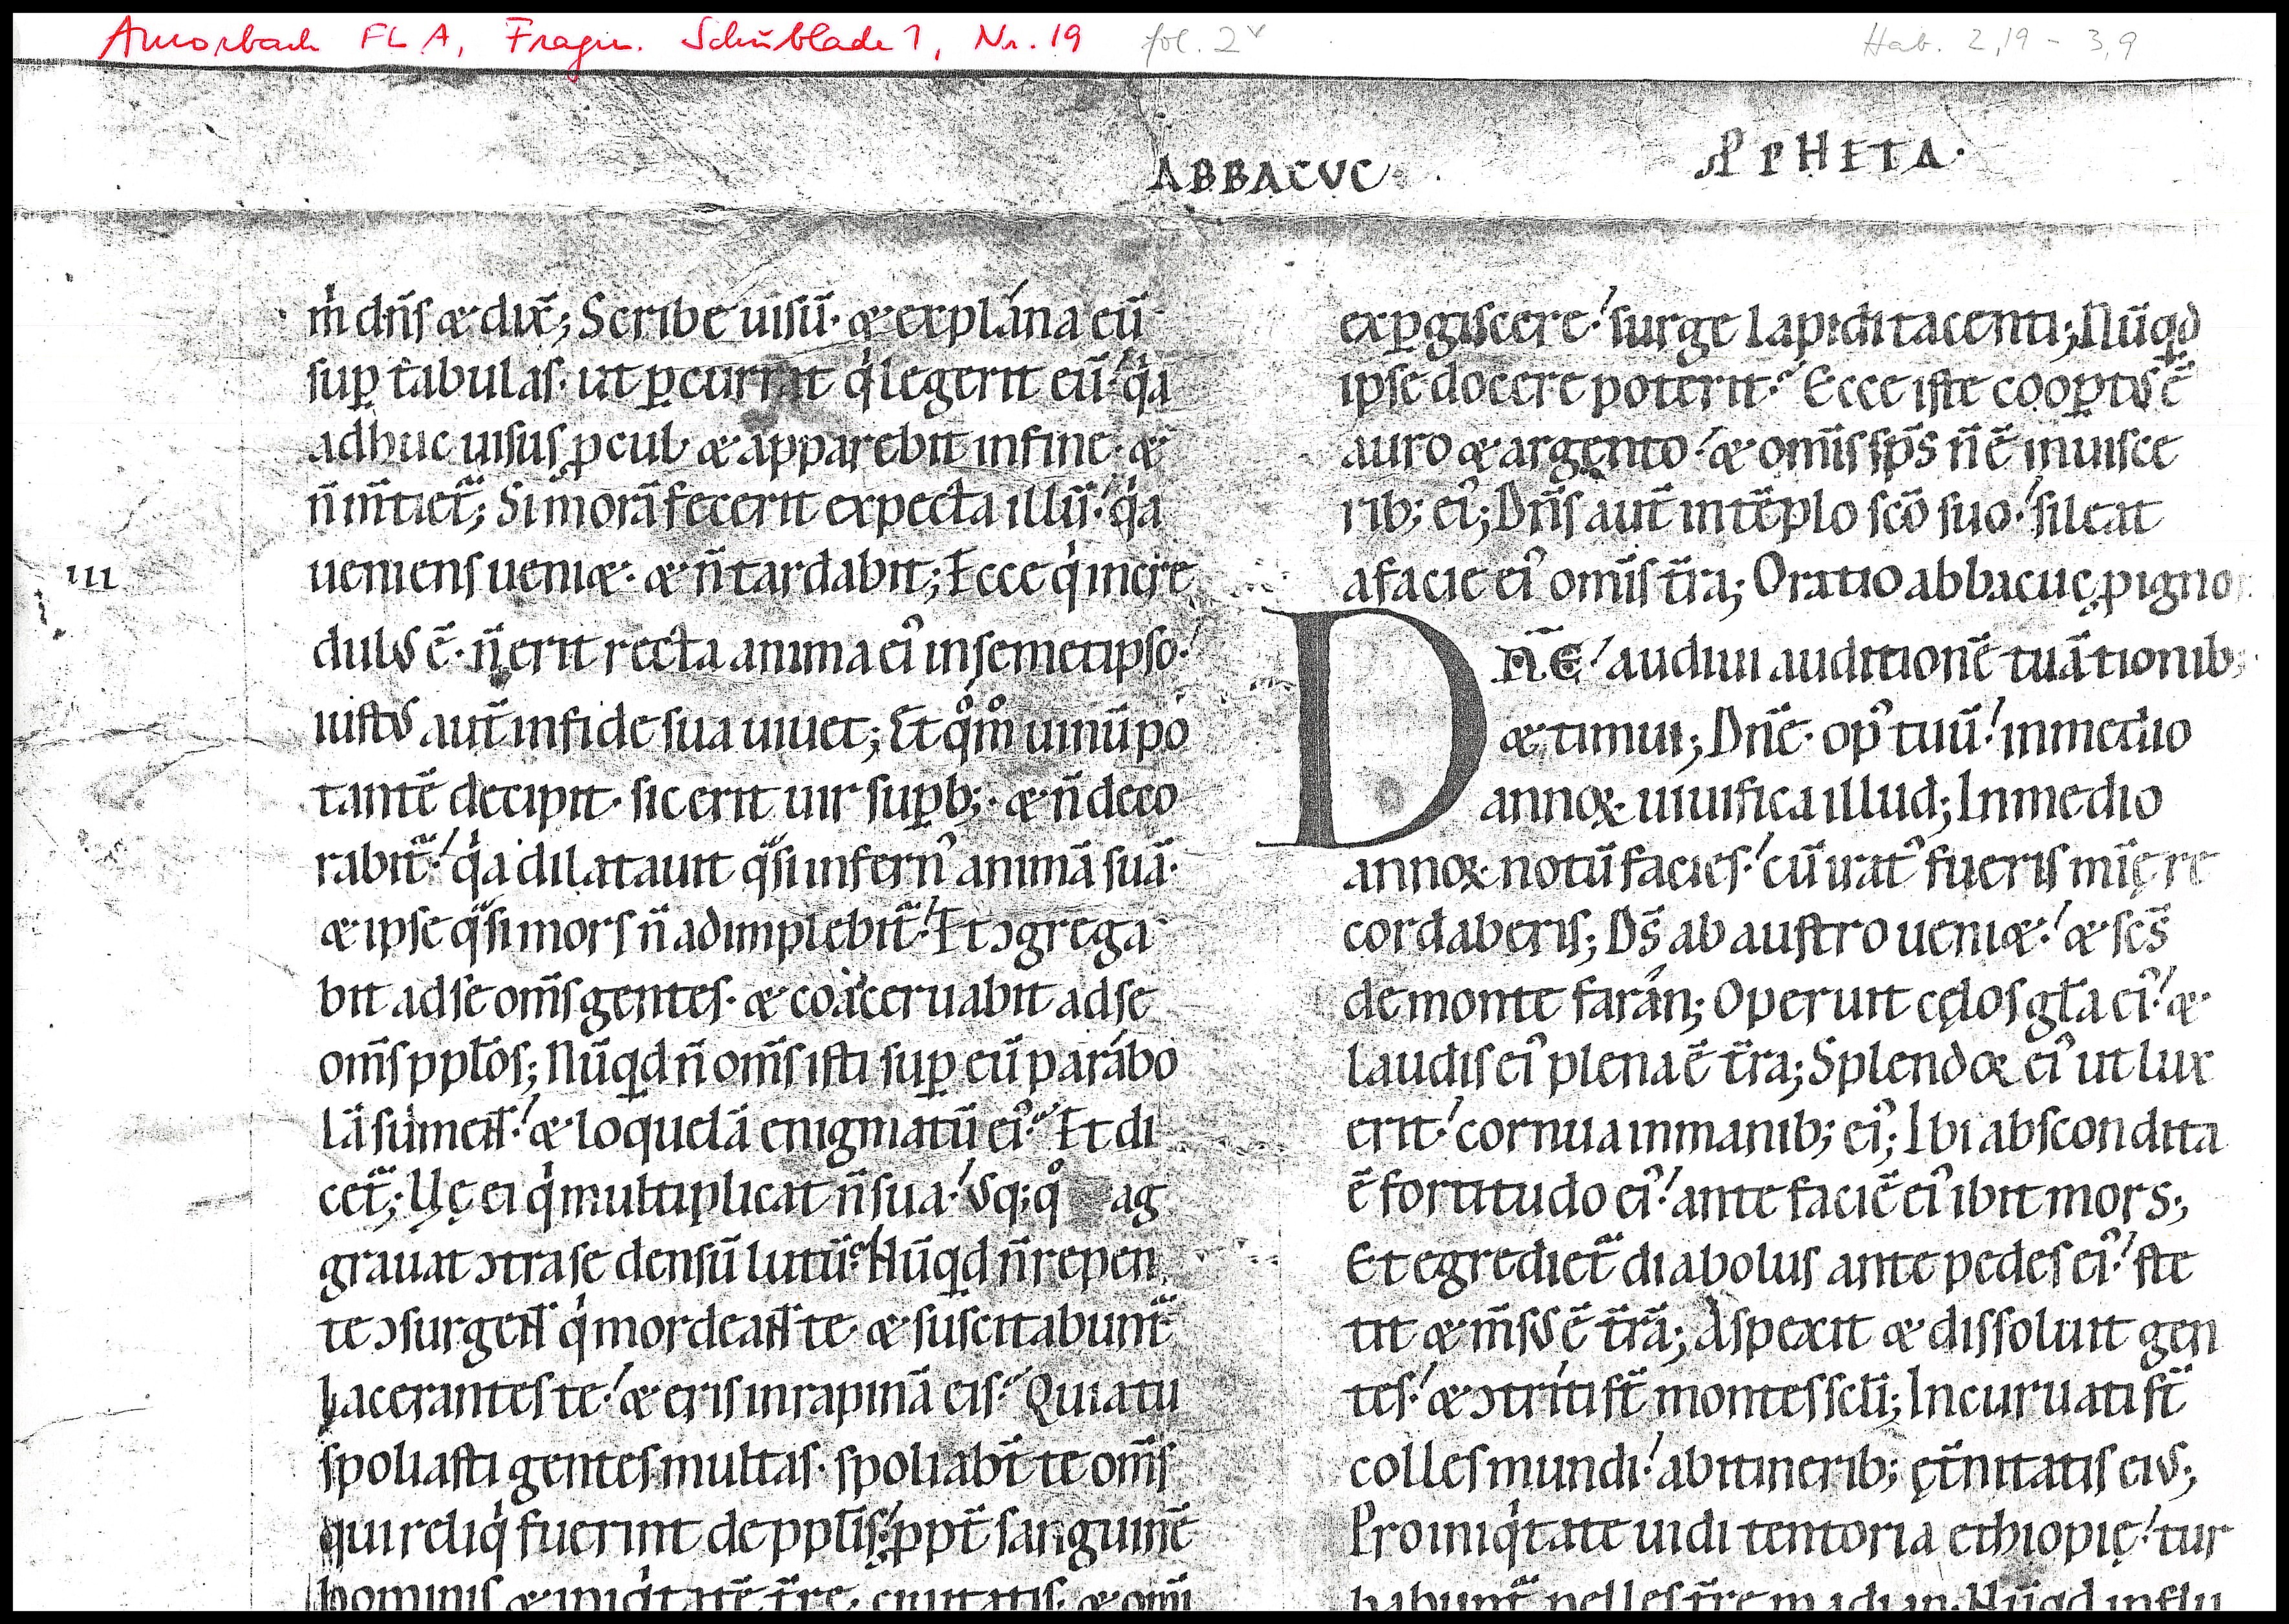 Amorbach FLA, Fragm. Schublade 1, Nr. 19 fol. 2v Hab. 2,19 - 3,9
ABBACVC· PꝓHETA·
m̍ dn̄s & dix̄; Scribe uisū· & explána eū
suꝑ tabulas· ut ꝑcurrat q̍ legerit eū· q̍a
adhuc uisus ꝓcul & apparebit in fine· &
n̄ m̄tiet̄; Si morā fecerit expecta illū· q̍a
ueniens ueni&· & n̄ tardabit; Ecce q̍ incre
dulus ē· n̄ erit recta anima ei᾽ in semetipso·
iustus aut̄ in fide sua uiuet; Et qm̊ uinū po
tantē decipit· sic erit uir suꝑb;· & n̄ deco
rabit̄· q̍a dilatauit qͣsi infern᾽ animā suā·
& ipse qͣsi mors n̄ adimplebit̄· Et ↄgrega
bit ad se om̄s gentes· & coaceruabit ad se
om̄s pplo̅s; Nūqd n̄ om̄s isti suꝑ eū parábo
lā sument̄· & loquelā enigmatū ei᾽· Et di
cet̄; Uę ei q̍ multiplicat n̄ sua· Usq; q̊ ag
grauat ↄtra se densū lutū· Nūqd n̄ repen
te ↄsurgent̄ q̍ mordeant̄ te· & suscitabunt̄
lacerantes te· & eris in rapinā eis· Quia tu
spoliasti gentes multas· spoliabt̄ te om̄s
qui reliq̍ fuerint de ppl̄is· ꝓpt̄ sanguinē
hominis & iniq̍tatē t̄rę· ciuitatis· & omī
III
exꝑgiscere· surge lapidi tacenti; Nūqd
ipse docere poterit· Ecce iste cooꝑtus ē
auro & argento· & omīs sp̄s n̄ ē in uisce
rib; ei᾽; Dn̄s aut̄ in tēplo scō suo· sileat
a facie ei᾽ omīs t̄ra; Oratio abbacuc ꝓ igno
DN̄E· audiui auditionē tuā tionib;
& timui; Dn̄e· op᾽ tuū· in medio
annoꝝ· uiuifica illud; In medio
annoꝝ notū facies· cū irat᾽ fueris mīę re
cordaberis; Ds̄ ab austro ueni&· & scs̄
de monte farán; Operuit cęlos gl̄a ei᾽· &
laudis ei᾽ plena ē t̄ra; Splendor ei᾽ ut lux
erit· cornua in manib; ei᾽; Ibi abscondita
ē fortitudo ei᾽· ante faciē ei᾽ ibit mors;
Et egrediet̄ diabolus ante pedes ei᾽· ste
tit & m̄sus ē t̄rā; Aspexit & dissoluit gen
tes· & ↄtríti st̄ montes sclī; Incuruati st̄
colles mundi· ab itinerib; ęt̄nitatis eius;
Pro iniq̍tate uidi tentoria ethiopię· tur
babunt̄ pelles t̄rę madian· Nūqd in flu